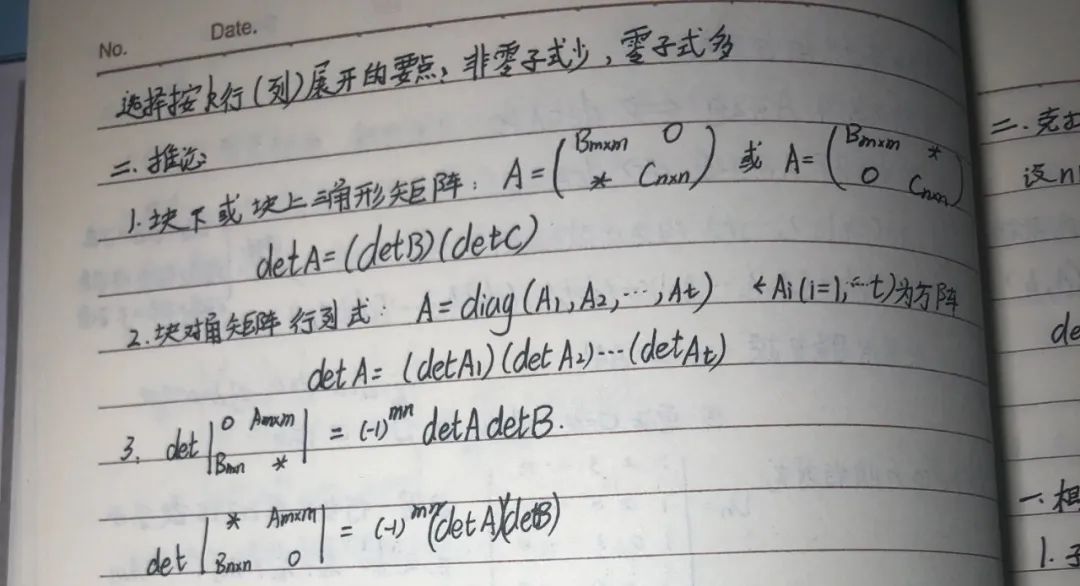 No.
Date.
选择按k行(列)展开的要点:非零子式少,零子式多
二.推论
1.块下或块上三角形矩阵: A=(Bm×m 0 * Cn×n) 或 A=(Bm×m * 0 Cn×n)
detA=(detB)(detC)
2.块对角矩阵行列式: A=diag(A1,A2,…,At) ←Ai(i=1,…t)为方阵
detA=(detA1)(detA2)…(detAt)
3. det|0 Am×m Bn×n *| = (-1)^mn detA detB.
det|* Am×m Bn×n 0| = (-1)^mn(detA)(detB)
二.克
设n
de
一.相
1.子